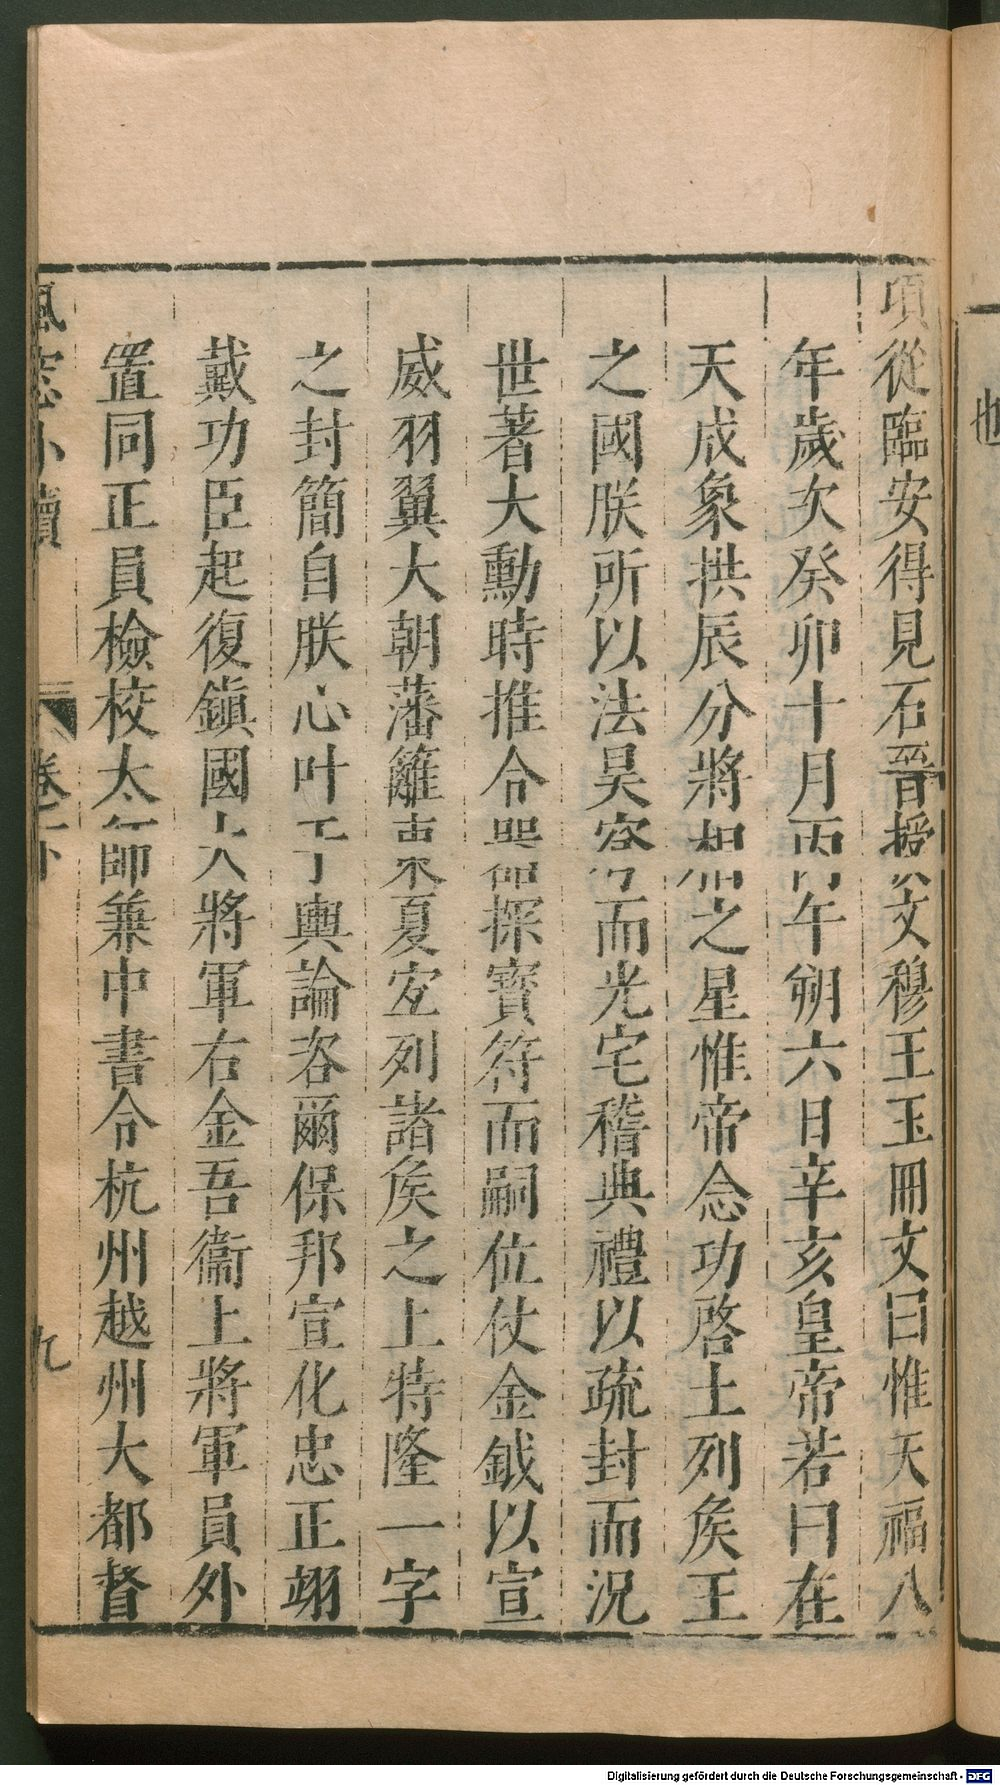 項從臨安得見石晉授文穆王玉冊文曰惟天福八
年歲次癸卯十月丙午朔六日辛亥皇帝若曰在
天成象拱辰分將相之星惟帝念功啓土列矦王
之國朕所以法昊穹而光宅稽典禮以疏封而況
世著大勳時推令器探寶符而嗣位仗金鉞以宣
威羽翼大朝藩籬東夏宜列諸矦之上特隆一字
之封簡自朕心叶于輿論咨爾保邦宣化忠正翊
戴功臣起復鎮國大將軍右金吾衞上將軍員外
置同正員檢校太師兼中書令杭州越州大都督
楓窓小牘
卷下
九
也
Digitalisierung gefördert durch die Deutsche Forschungsgemeinschaft - DFG